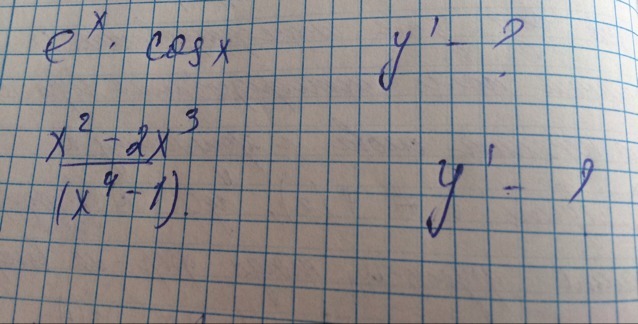 e^x · cos x y' - ?
x^2 - 2x^3 / (x^4 - 1). y' - ?